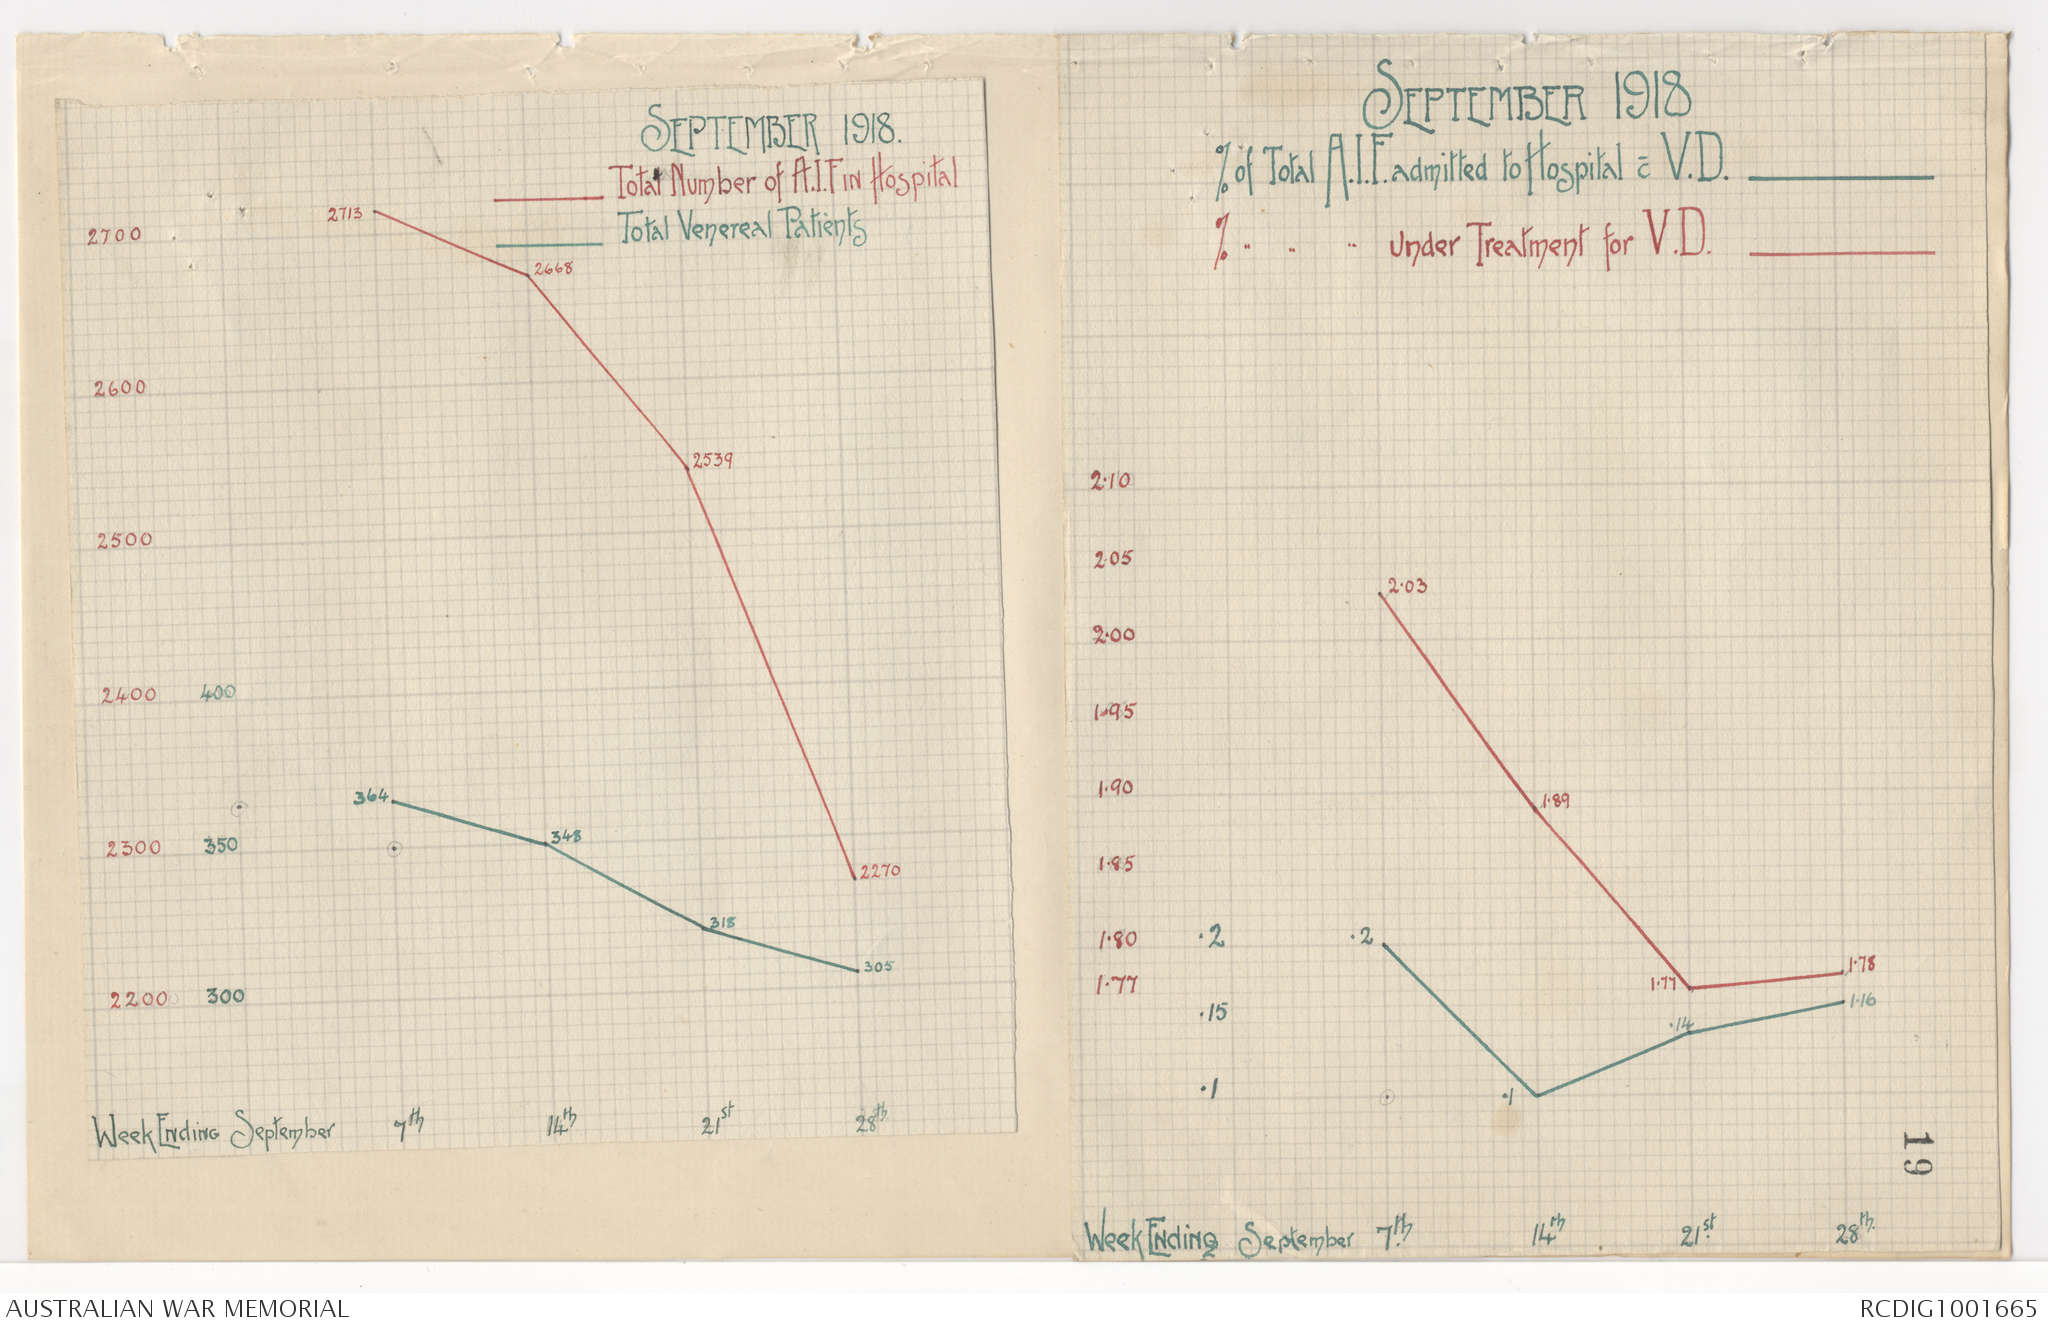 SEPTEMBER 1918.
Total Number of A.I.F in Hospital
Total Venereal Patients
2713
2700
2668
2600
2539
2500
2400 400
364
348
2300 350
2270
318
305
2200 300
Week Ending September 7th 14th 21st 28th
SEPTEMBER 1918
% of Total A.I.F. admitted to Hospital c̄ V.D.
% " " " under Treatment for V.D.
2.10
2.05
2.03
2.00
1.95
1.90
1.89
1.85
1.80 .2 .2
1.77 1.77 1.78
1.16
.15
.14
.1 .1
19
Week Ending September 7th 14th 21st 28th.
AUSTRALIAN WAR MEMORIAL
RCDIG1001665